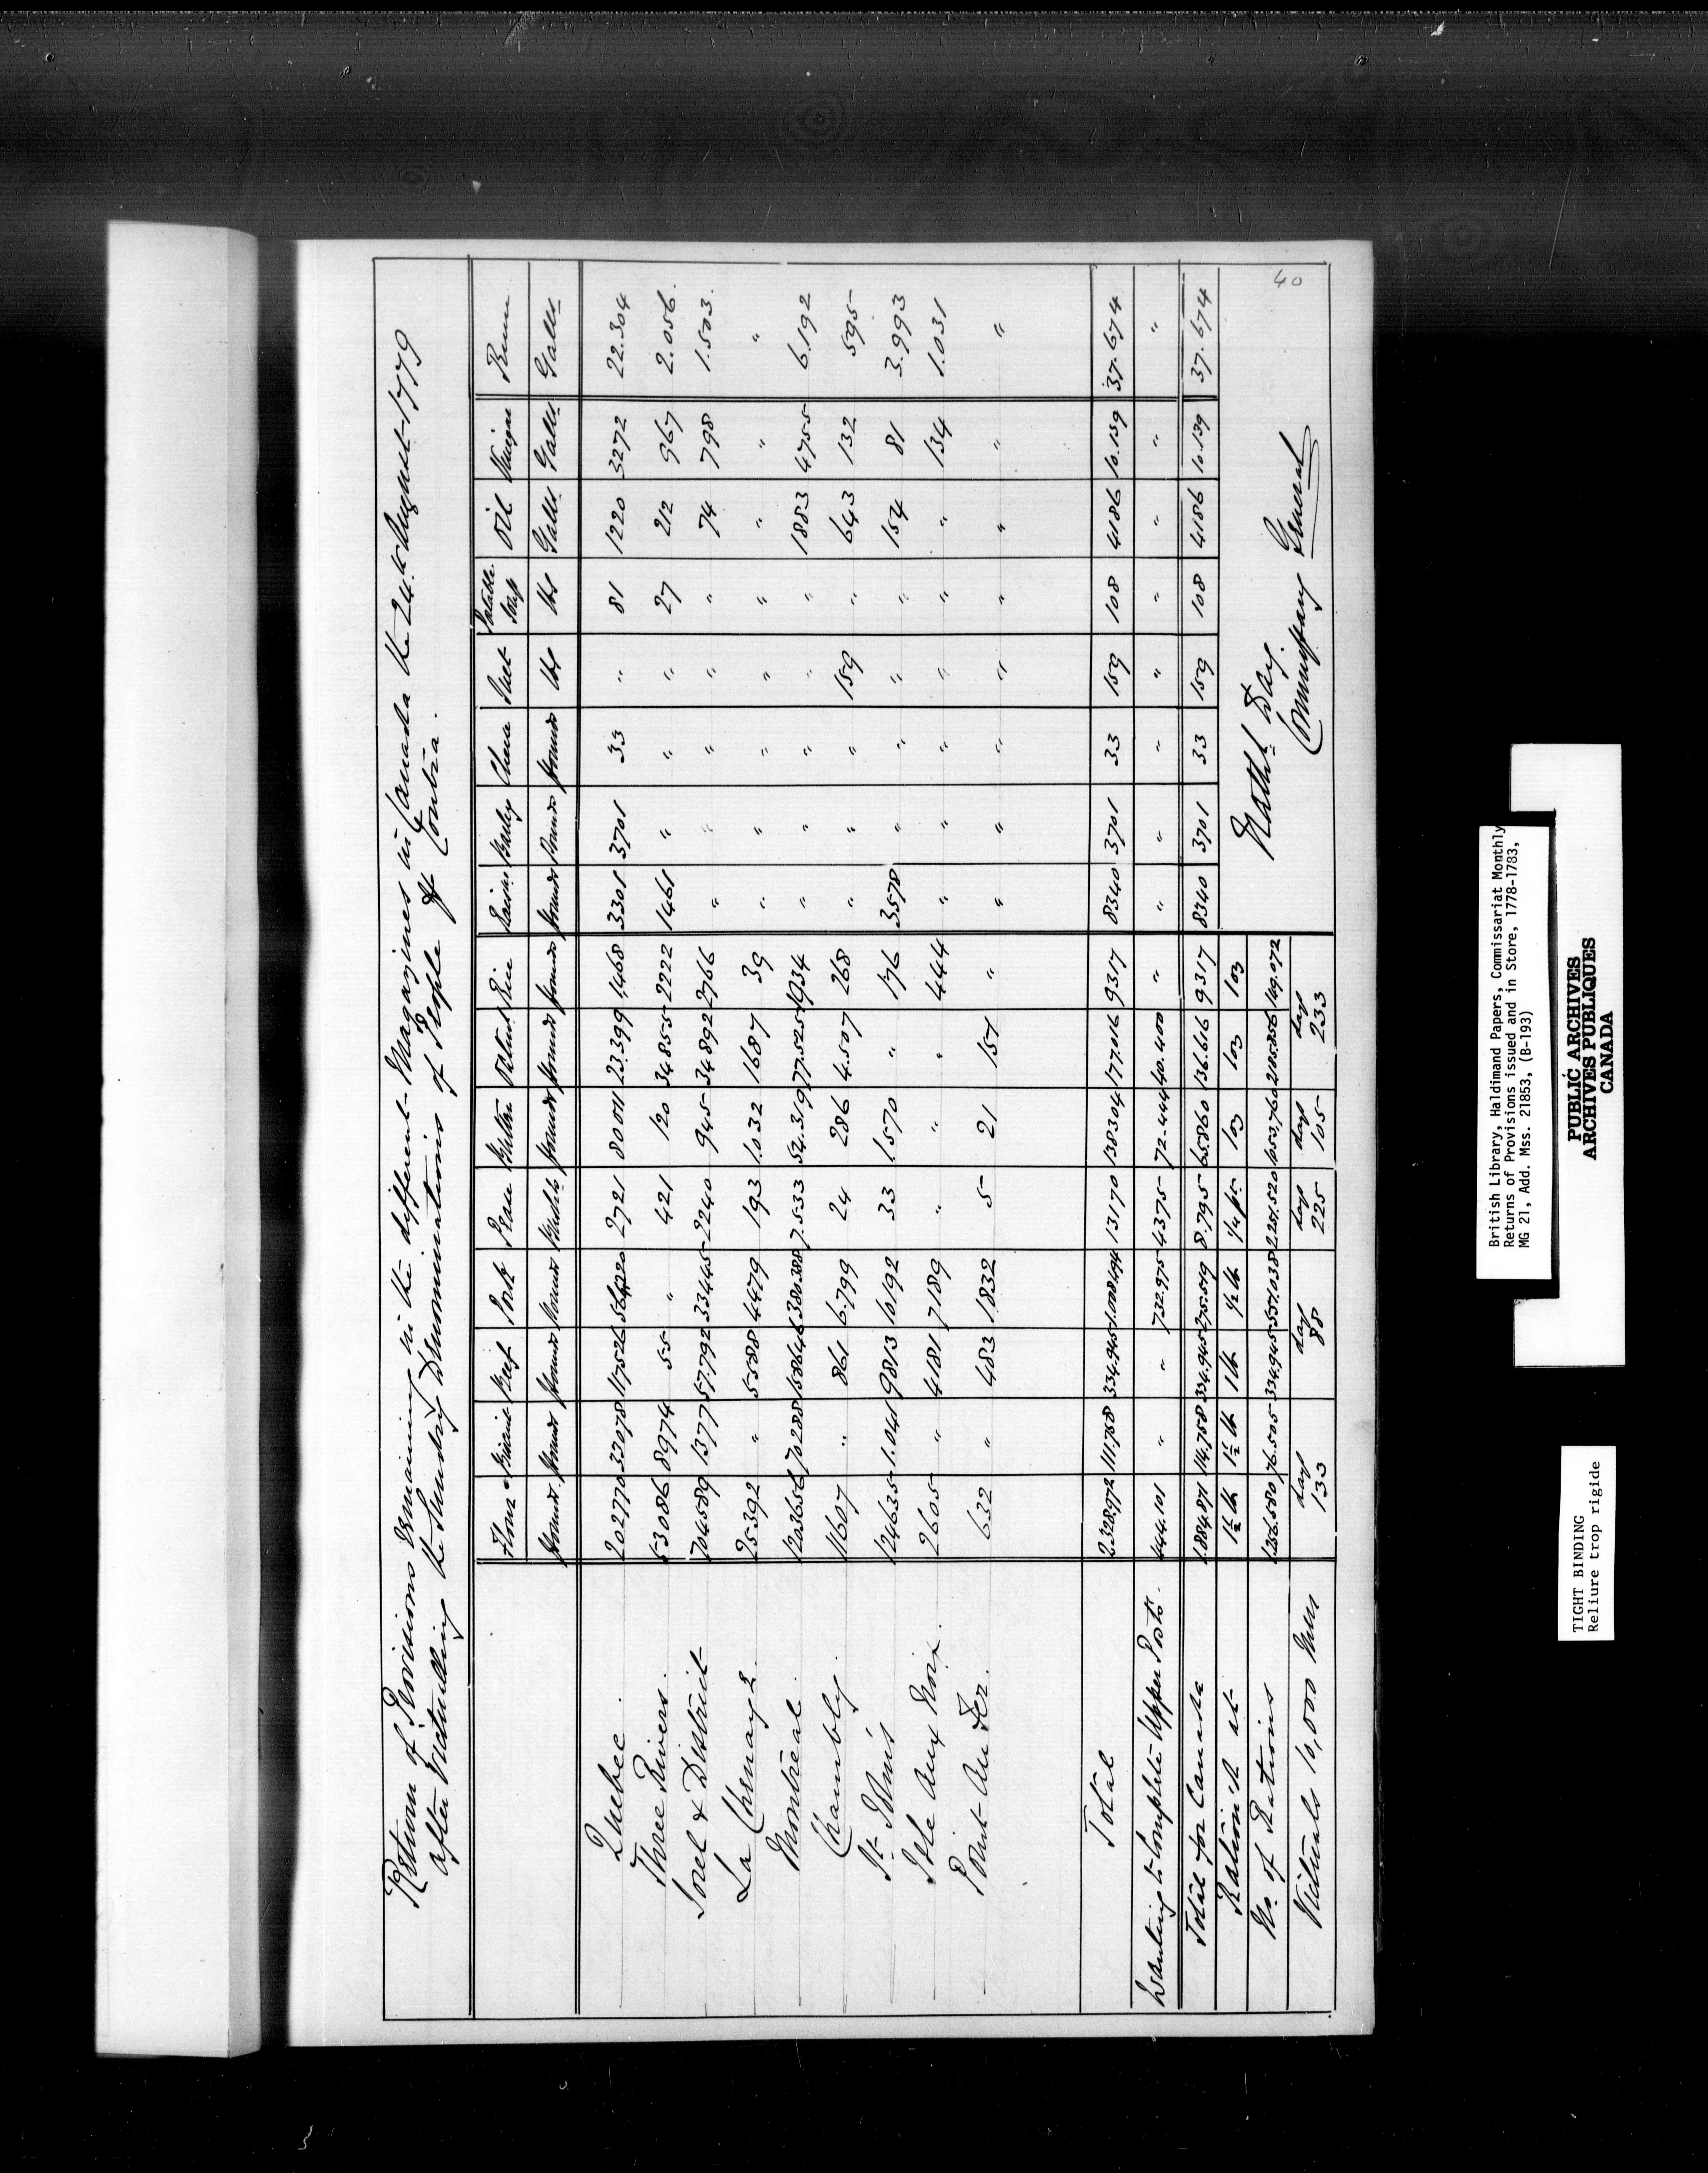 Return of Provisions remaining in the different Magazines in Canada the 24th August 1779
after Victualling the Sundry Denominations of People pr Contra.
Flour Biscuit Beef Pork Pease Butter Oatml. Rice Raisins Barley Cheese Suet Portable Soup Oil Vinigar Rum
Pounds Pounds Pounds Pounds Bushls Pounds Pounds Pounds Pounds Pounds Pounds lbs lbs Galls Galls Galls
Quebec. 202770 33078 117526 2721 80011 23.399 1,468 3301 3701 33 " 81 1220 3272 22.304
Three Rivers. 53086 8974 55 " 421 120 34855 2222 1461 " " " 27 212 967 2.056.
Sorel & District 704589 1377 57792 33445 2240 945 34892 2766 " " " " " 74 798 1.503.
La Chenay 25392 " 5588 4479 193 1.032 1687 39 " " " " " " " "
Montreal 1203656 70288 158646 380388 7.533 54.319 77.525 1934 " " " " " 1883 4755 6.192
Chambly. 11607 " 861 6.799 24 286 4.507 268 " " " 159 " 643 132 595
St. Johns 124635 1.041 9813 10192 33 1.570 " 176 3578 " " " " 154 81 3.993
Isle Aux Noix. 2605 " 4181 7189 " " " 444 " " " " " " 134 1.031
Point Au Fer. 632 " 483 1832 5 21 151 " " " " " " " " "
Total 2.328.972 111.758 334.945 1.008.494 13170 138304 177.016 9317 8340 3701 33 159 108 4186 10.139 37.674
Wanting to Complete Upper Posts. 444.101 " " 732.975 4375 72.444 40.400 " " " " " " " " "
Total for Canada 1.884.871 114.758 334.945 275.519 8.795 65.860 136.616 9317 8340 3701 33 159 108 4186 10.139 37.674
Ration is at 1½ lb 1½ lb 1 lb ½ lb ¼ pt 1 oz 1 oz 1 oz
No. of Rations 1.256.580 76.505 334.945 551.038 2251.520 1053.760 149.072
Victuals 10,000 Men days 133 days 88 days 225 days 105 days 233
Nathl. Day
Commissary General
40
British Library, Haldimand Papers, Commissariat Monthly
Returns of Provisions issued and in Store, 1778-1783,
MG 21, Add. Mss. 21853, (B-193)
PUBLIC ARCHIVES
ARCHIVES PUBLIQUES
CANADA
TIGHT BINDING
Reliure trop rigide